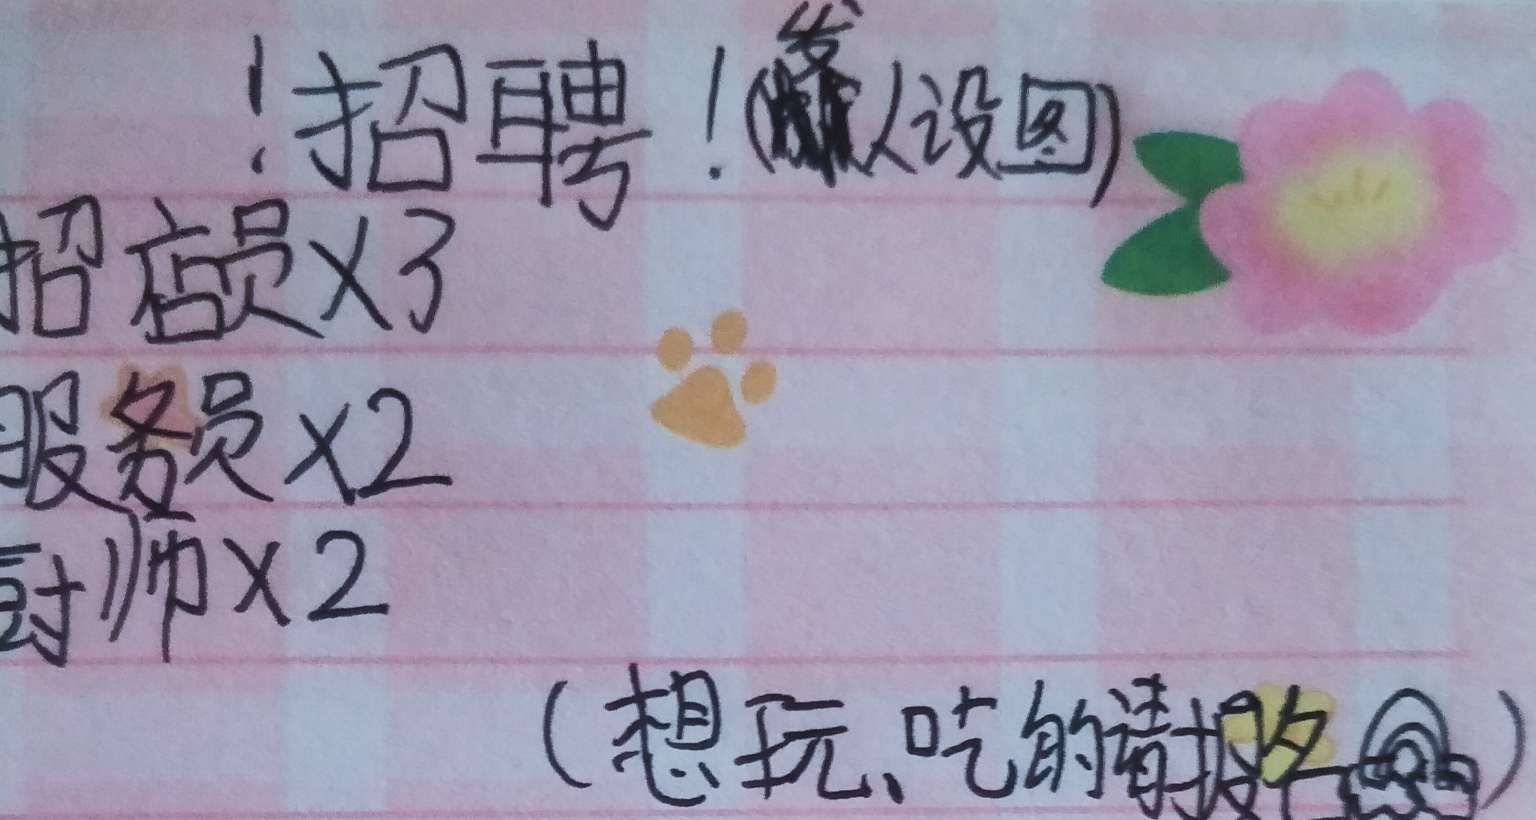 ！招聘！（发人设图）
招店员X3
服务员X2
厨师X2
（想玩、吃的请报名）